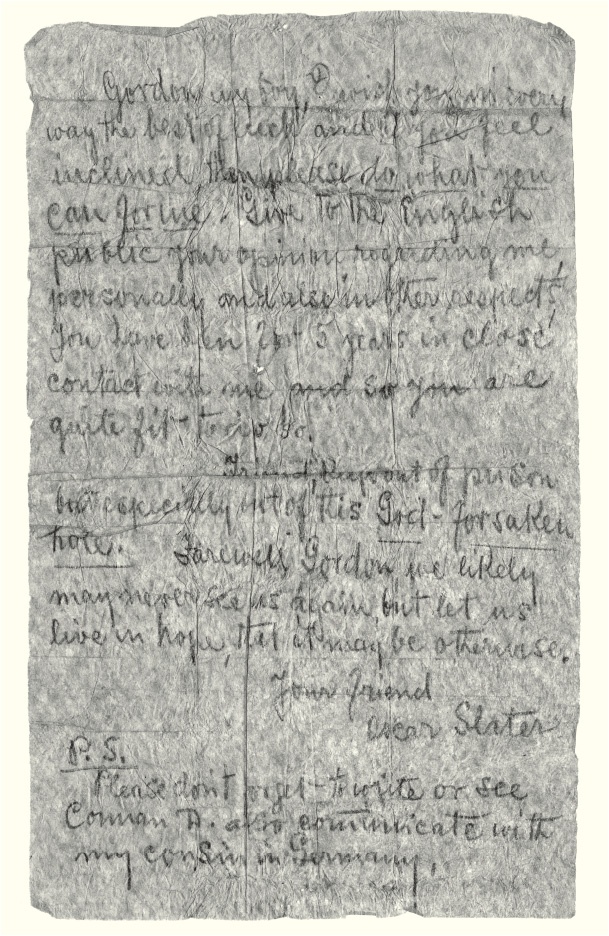 Gordon my boy, I wish you in every
way the best of luck and if you feel
inclined then please do what you
can for me. Give to the English
public your opinion regarding me,
personally and also in other respects,
You have been for 5 years in close
contact with me and so you are
quite fit to do so.
Friend, keep out of prison
but especially out of this God-forsaken
hole. Farewell Gordon we likely
may never see us again, but let us
live in hope, that it may be otherwise.
Your friend
Oscar Slater
P.S.
Please don't orget to write or see
Connan D. also communicate with
my consin in Germany.